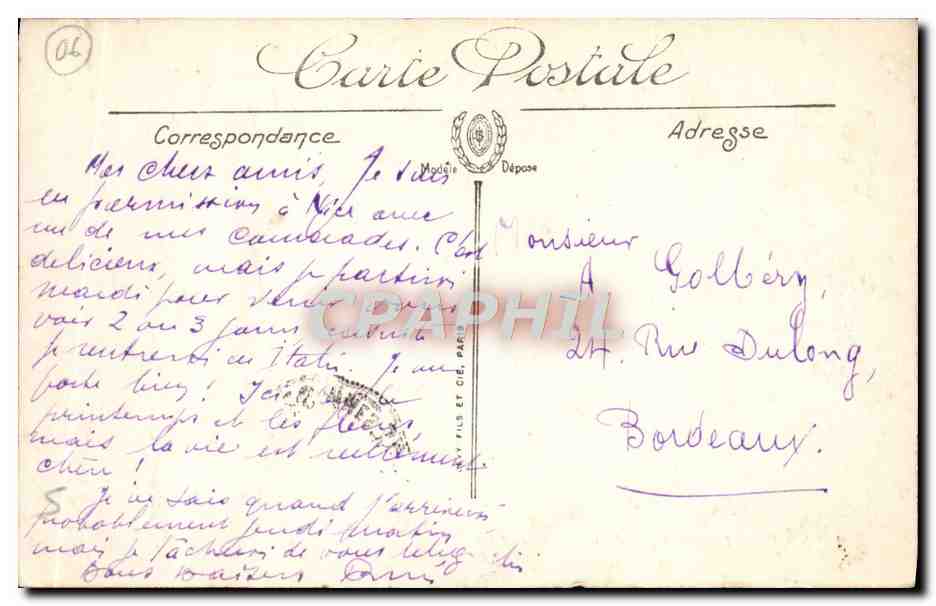 06
Carte Postale
Correspondance
Adresse
Modèle Déposé
Mes chers amis, Je suis
en permission à Nice avec
un de mes camarades. C'est
delicieux, mais je partirai
mardi pour venir vous
voir 2 ou 3 jours ensuite
je rentrerai en Italie. Je me
porte bien! Ici le
printemps et les fleurs,
mais la vie est
chère!
Je ne sais quand j'arriverai
probablement jeudi matin
mais je tâcherai de vous
Bons baisers
Monsieur
A Golbéry,
24. Rue Dulong,
Bordeaux.
LÉVY FILS ET CIE, PARIS
CPAPHIL
5